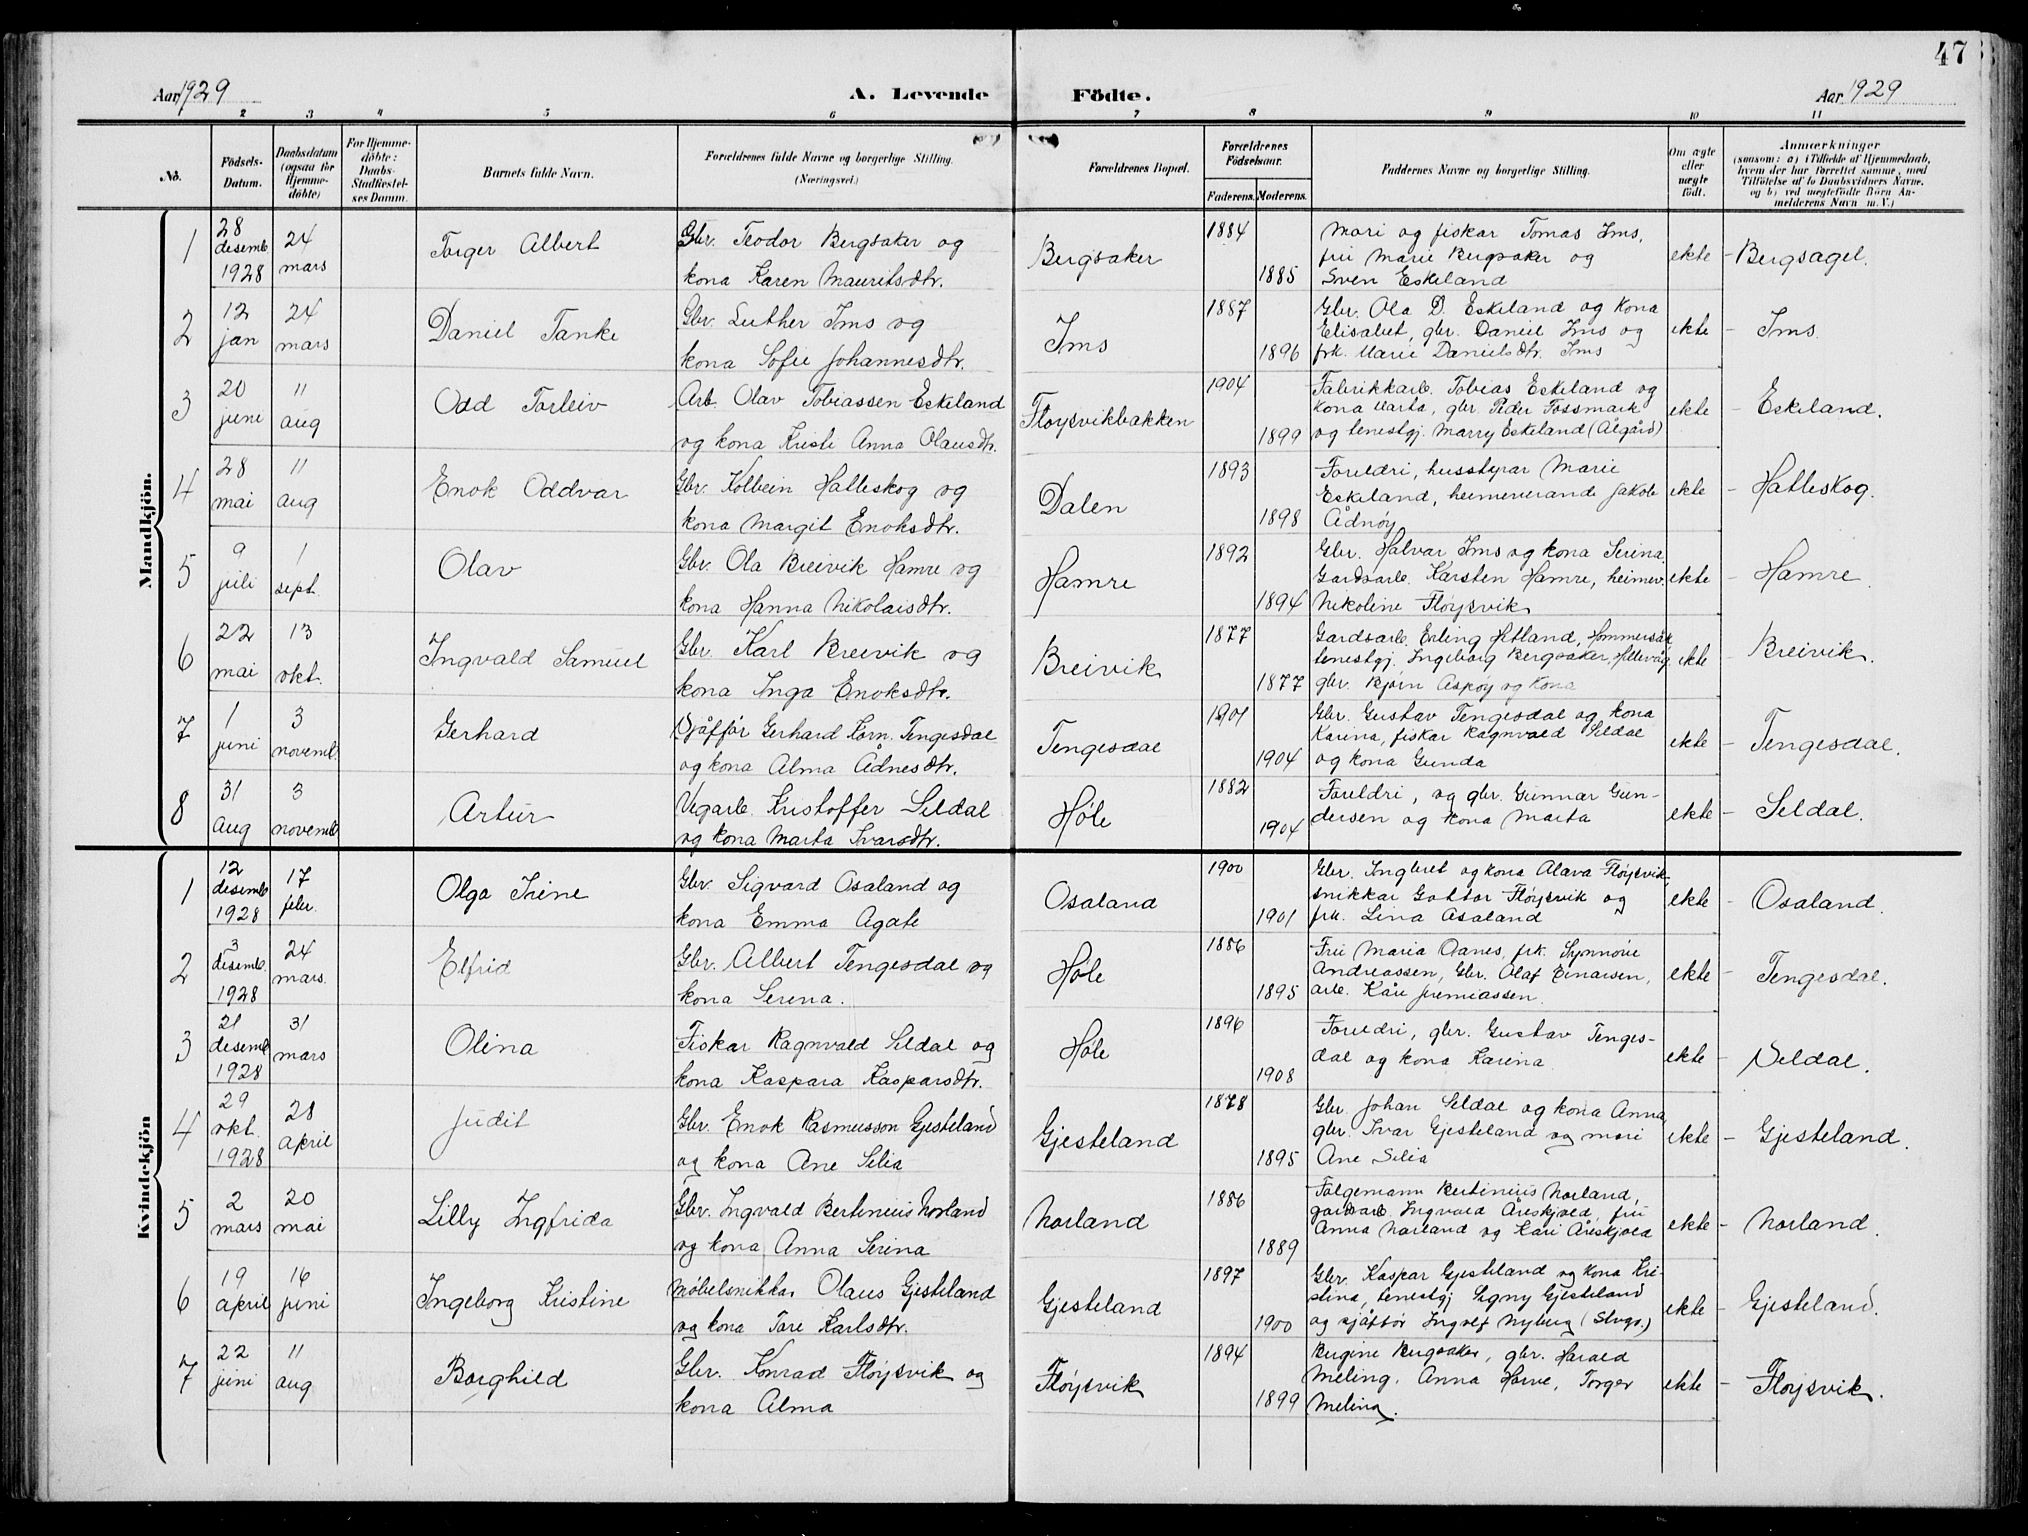 47
Aar 1929 A. Levende Födte. Aar 1929
1 2 3 4 5 6 7 8 9 10 11
No.
Födsels-Datum.
Daabsdatum (ogsaa for Hjemmedöbte)
For Hjemmedöbte: Daabs-Stadfæstelses Datum.
Barnets fulde Navn.
Forældrenes fulde Navne og borgerlige Stilling. (Næringsvei.)
Forældrenes Bopæl.
Forældrenes Födselsaar.
Faderens. Moderens.
Faddernes Navne og borgerlige Stilling.
Om ægte eller uægte födt.
Anmærkninger
(saasom: a) i Tilfælde af Hjemmedaab, hvem der har forrettet samme, med Tilföielse af to Daabsvidners Navne, og b) ved uegtefödte Börn Anmelderens Navn m. V.)
Mandkjön.
1 28 desemb. 1928 24 mars Torger Albert Gbr. Teodor Bergsaker og kona Karen Mauritsdtr. Bergsaker 1884 1885 Mori og fiskar Tomas Ims, frú Marie Bergsaker og Sven Eskeland ekte – Bergsagel.
2 12 jan 24 mars Daniel Tanke Gbr. Luther Ims og kona Sofie Johannesdtr. Ims 1887 1896 Gbr. Ola D. Eskeland og kona Elisabet, gbr. Daniel Ims og frk. Marie Danielsdtr. Ims ekte – Ims.
3 20 juni 11 aug Odd Torleiv Arb. Olav Tobiassen Eskeland og kona Kristi Anna Olausdtr. Fløysvikbakken 1904 1899 Fabrikkarb. Tobias Eskeland og kona Marta, gbr. Peder Fossmark og tenestgj. Marry Eskeland (Ålgård) ekte – Eskeland.
4 28 mai 11 aug Enok Oddvar Gbr. Kolbein Halleskog og kona Margit Enoksdtr. Dalen 1893 1898 Foreldri, husstyrar Marie Eskeland, heimeverande Jakob Ådnøy ekte – Halleskog.
5 9 juli 1 sept. Olav Gbr. Ola Breivik Hamre og kona Hanna Nikolaisdtr. Hamre 1892 1894 Gbr. Halvar Ims og kona Serina. Gardsarb. Karsten Hamre, heimev. Nikoline Fløysvik ekte – Hamre
6 22 mai 13 okt. Ingvald Samuel Gbr. Karl Breivik og kona Inga Enoksdtr. Breivik 1877 1877 Gardsarb. Erling Hetland, Hommersåk tenestgj. Ingeborg Bergsaker, Hillevåg gbr. Bjørn Aspøy og kona ekte – Breivik.
7 1 juni 3 novemb. Gerhard Sjåffør Gerhard Korn. Tengesdal og kona Alma Ådnesdtr. Tengesdal 1901 1904 Gbr. Gustav Tengesdal og kona Karina, fiskar Ragnvald Seldal og kona Gunda ekte – Tengesdal.
8 31 aug 3 novemb Artur Vegarb. Kristoffer Seldal og kona Marta Ivarsdtr. Høle 1882 1904 Foreldri, og gbr. Gunnar Gundersen og kona Marta ekte – Seldal.
Kvindekjön
1 12 desemb. 1928 17 febr. Olga Irene Gbr. Sigvard Osaland og kona Emma Agate Osaland 1900 1901 Gbr. Ingbret og kona Alava Fløysvik, snikkar Gottar Fløysvik og frk. Lina Osaland ekte – Osaland.
2 3 desemb. 1928 24 mars. Elfrid Gbr. Albert Tengesdal og kona Serena. Høle 1886 1895 Frú Maria Oanes, frk. Synnøve Andreassen, Gbr. Olaf Einarsen, arb. Kåre Jeremiassen. ekte – Tengesdal.
3 21 desemb 1928 31 mars Olina Fiskar Ragnvald Seldal og kona Kaspara Kasparsdtr. Høle 1896 1908 Foreldri, gbr. Gustav Tengesdal og kona Karina ekte – Seldal.
4 29 okt. 1928 28 april Judit Gbr. Enok Rasmusson Gjesteland og kona Ane Silia Gjesteland 1878 1895 Gbr. Johan Seldal og kona Anna gbr. Ivar Gjesteland og mori Ane Silia ekte – Gjesteland.
5 2 mars 20 mai Lilly Ingfrida Gbr. Ingvald Bertinius Norland og kona Anna Serina Norland 1886 1889 Følgemann Bertinius Norland, gardsarb. Ingvald Åreskjold, frú Anna Norland og Kari Åreskjold ekte – Norland.
6 19 april 16 juni Ingeborg Kristine Møbelsnikkar Olaus Gjesteland og kona Tore Karlsdtr. Gjesteland 1897 1900 Gbr. Kaspar Gjesteland og kona Kristina, tenestgj. Signy Gjesteland og sjåffør Ingolf Nyberg (Stvgr.) ekte – Gjesteland.
7 22 juni 11 aug Borghild Gbr. Konrad Fløysvik og kona Alma Fløysvik 1894 1899 Bergine Bergsaker, gbr. Harald Meling, Anna Horve, Torger Meling. ekte – Fløysvik.